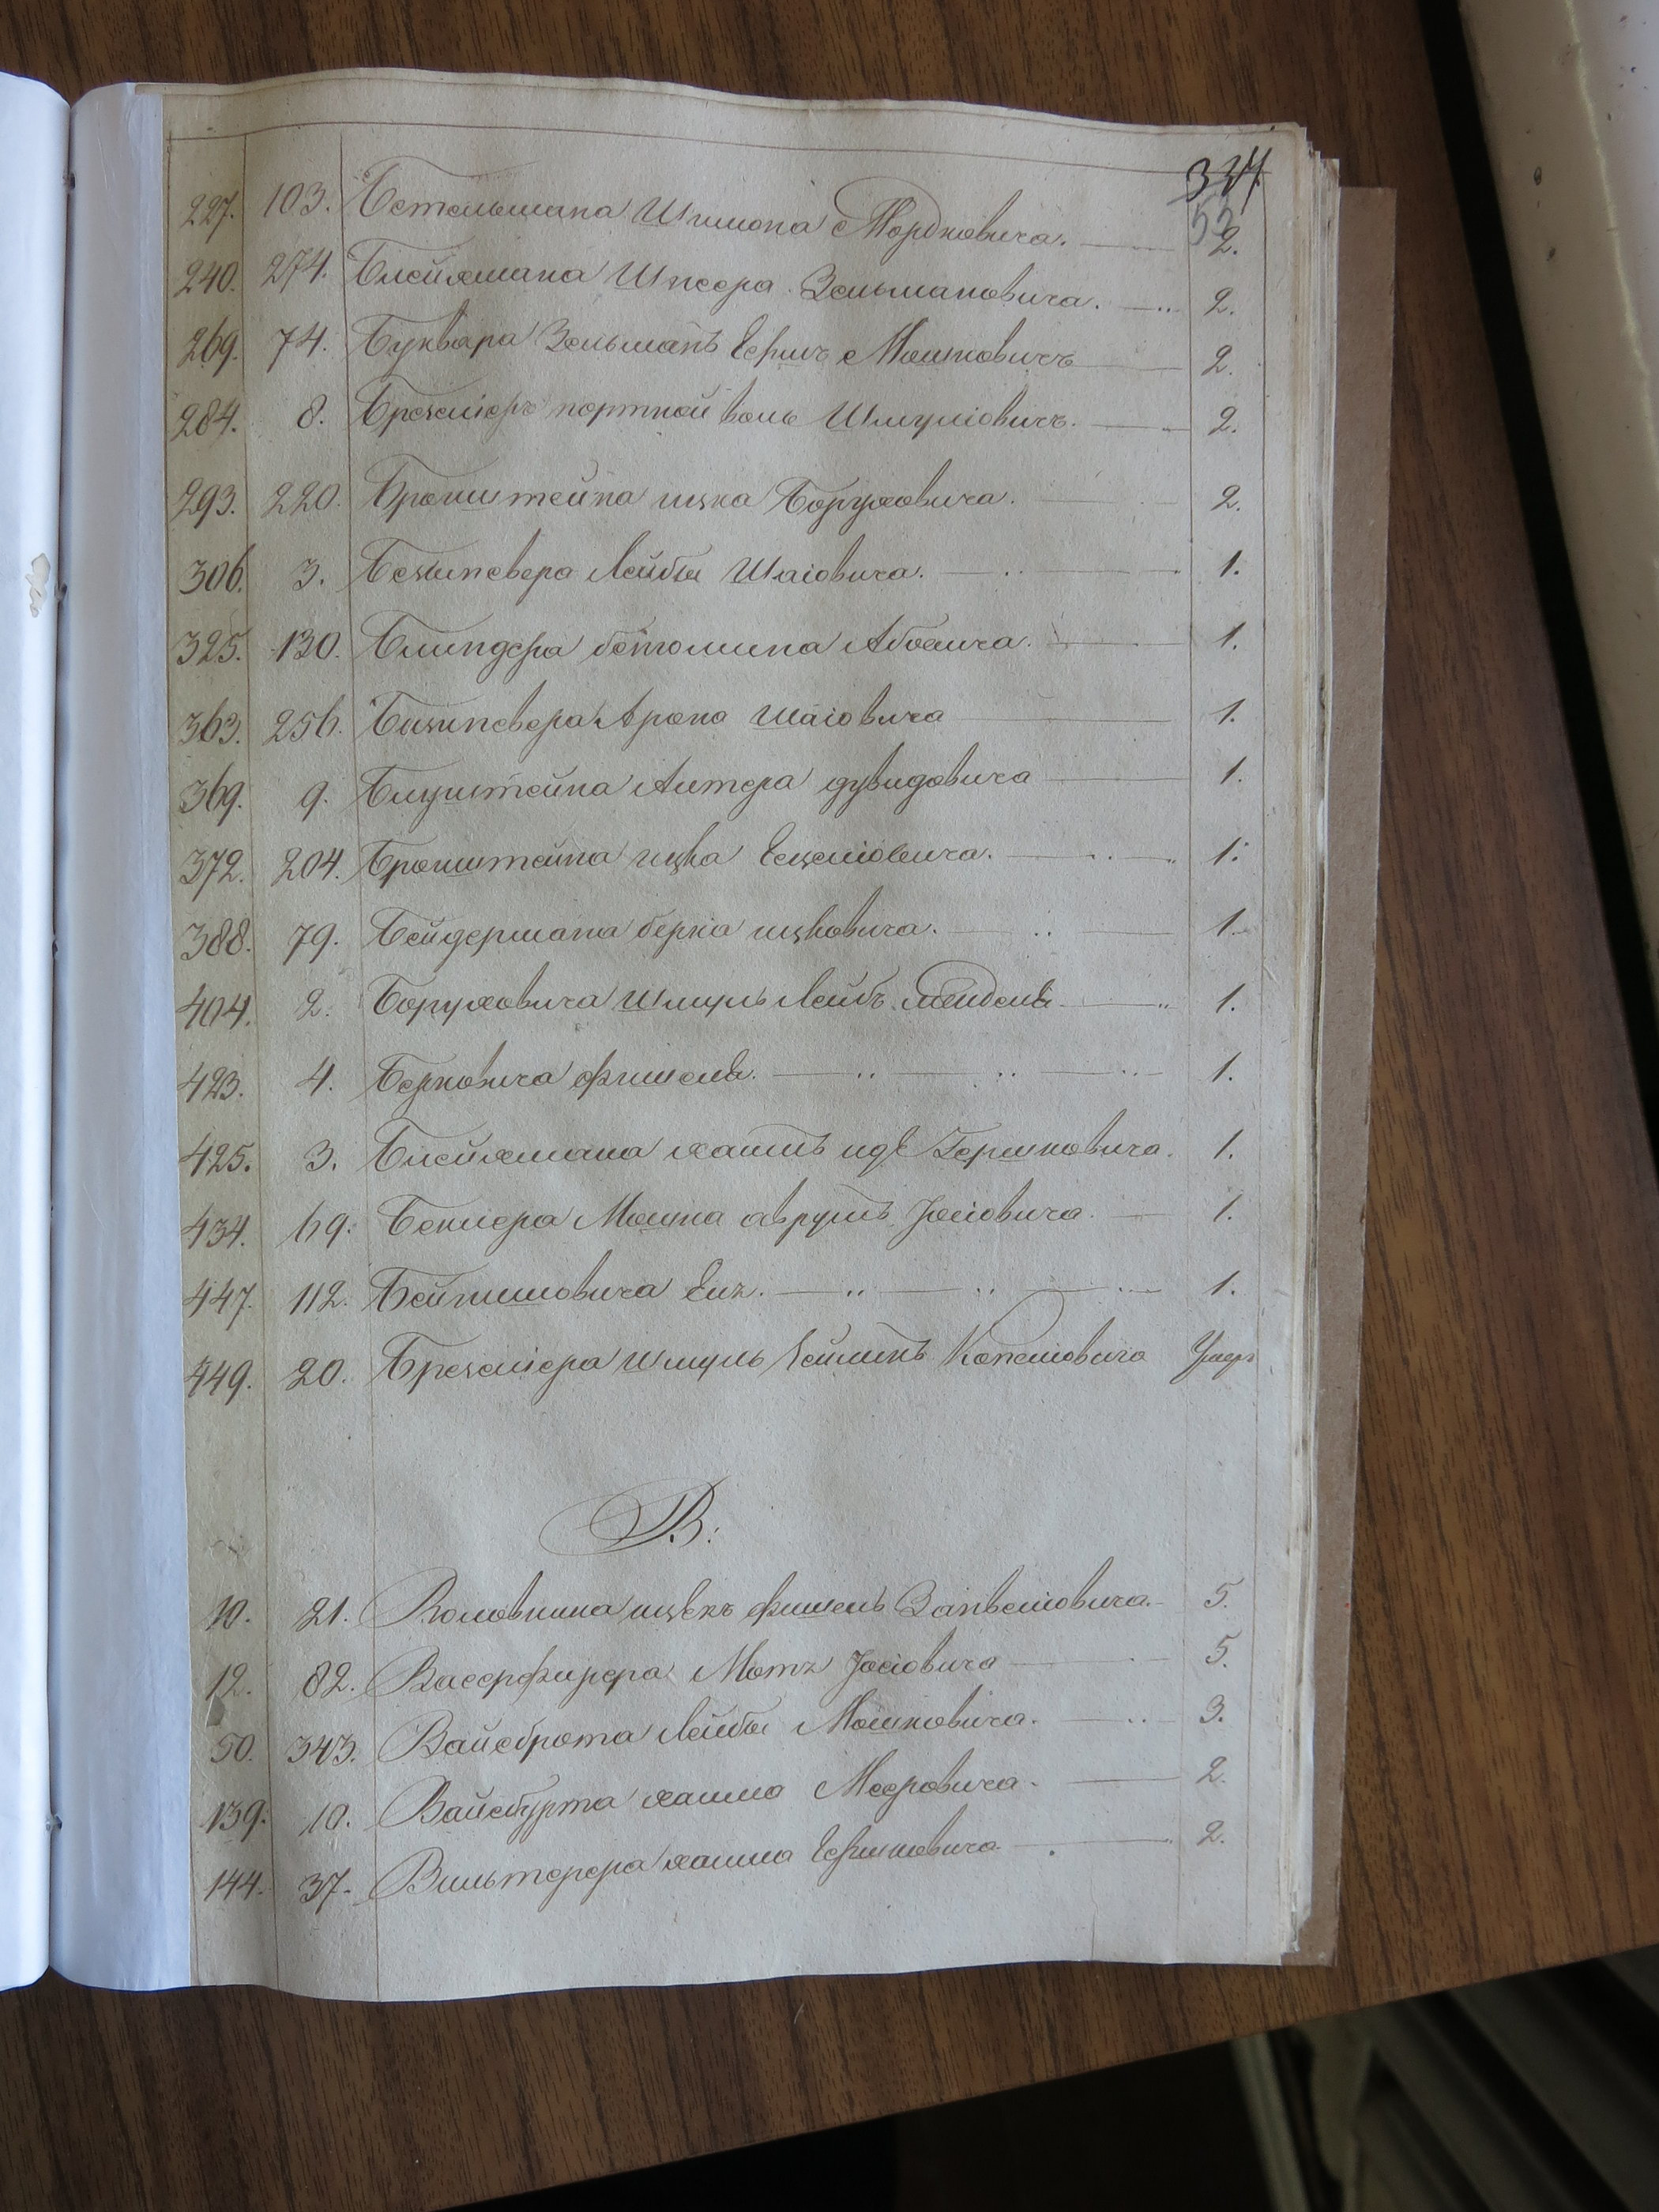 334
53
227. 103. Бетельмана Шимона Мордковича. 2.
240. 274. Блейхмана Шпсера Зельмановича. 2.
269. 74. Буквара Зельманъ Герш Мошковичъ 2.
284. 8. Брезлiеръ портной Шмулiовичъ. 2.
293. 220. Бронштейна ицка Боруховича. 2.
306. 3. Лейбы Шаiовича. 1.
325. 130. Блиндера бенюмина Абовича. 1.
363. 256. Арона Шаiовича 1.
369. 9. Блуштейна Алтера дувидовича 1.
372. 204. Бронштейна ицка Ецелiовича. 1.
388. 79. Бейдермана берка ицковича. 1.
404. 2. Боруховича Шмуль Лейбъ Менделя 1.
423. 4. Берковича фишеля. 1.
425. 3. Блейхмана хаимъ Гершковича. 1.
434. 69. Беклера Мошка аврумъ Iосiовича. 1.
447. 112. 1.
449. 20. Брезлiера Шмуль Копелiовича Умеръ
В:
10. 21. фишель 5.
12. 82. Васерфирера Мотя Iосiовича 5.
50. 343. Вайсброта Лейбы Мошковича. 3.
139. 10. Вайсбурта хаима Мееровича. 2.
144. 37. Вильтерера хаима Гершковича 2.